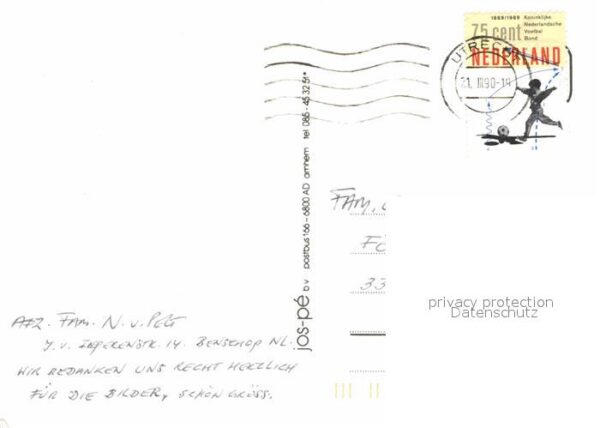 1889/1989 Koninklijke
Nederlandsche
Voetbal
Bond
75 cent
NEDERLAND
UTRECHT
21. III.90-14
jos-pé b v postbus 166 – 6800 AD arnhem tel 085-45 32 51*
FAM.
FÖ
33
privacy protection
Datenschutz
AFZ. FAM. N. v. PELT
J. v. STR. 14. BENSCHOP NL.
WIR BEDANKEN UNS RECHT HERZLICH
FÜR DIE BILDER, SCHÖN GRÜSS.